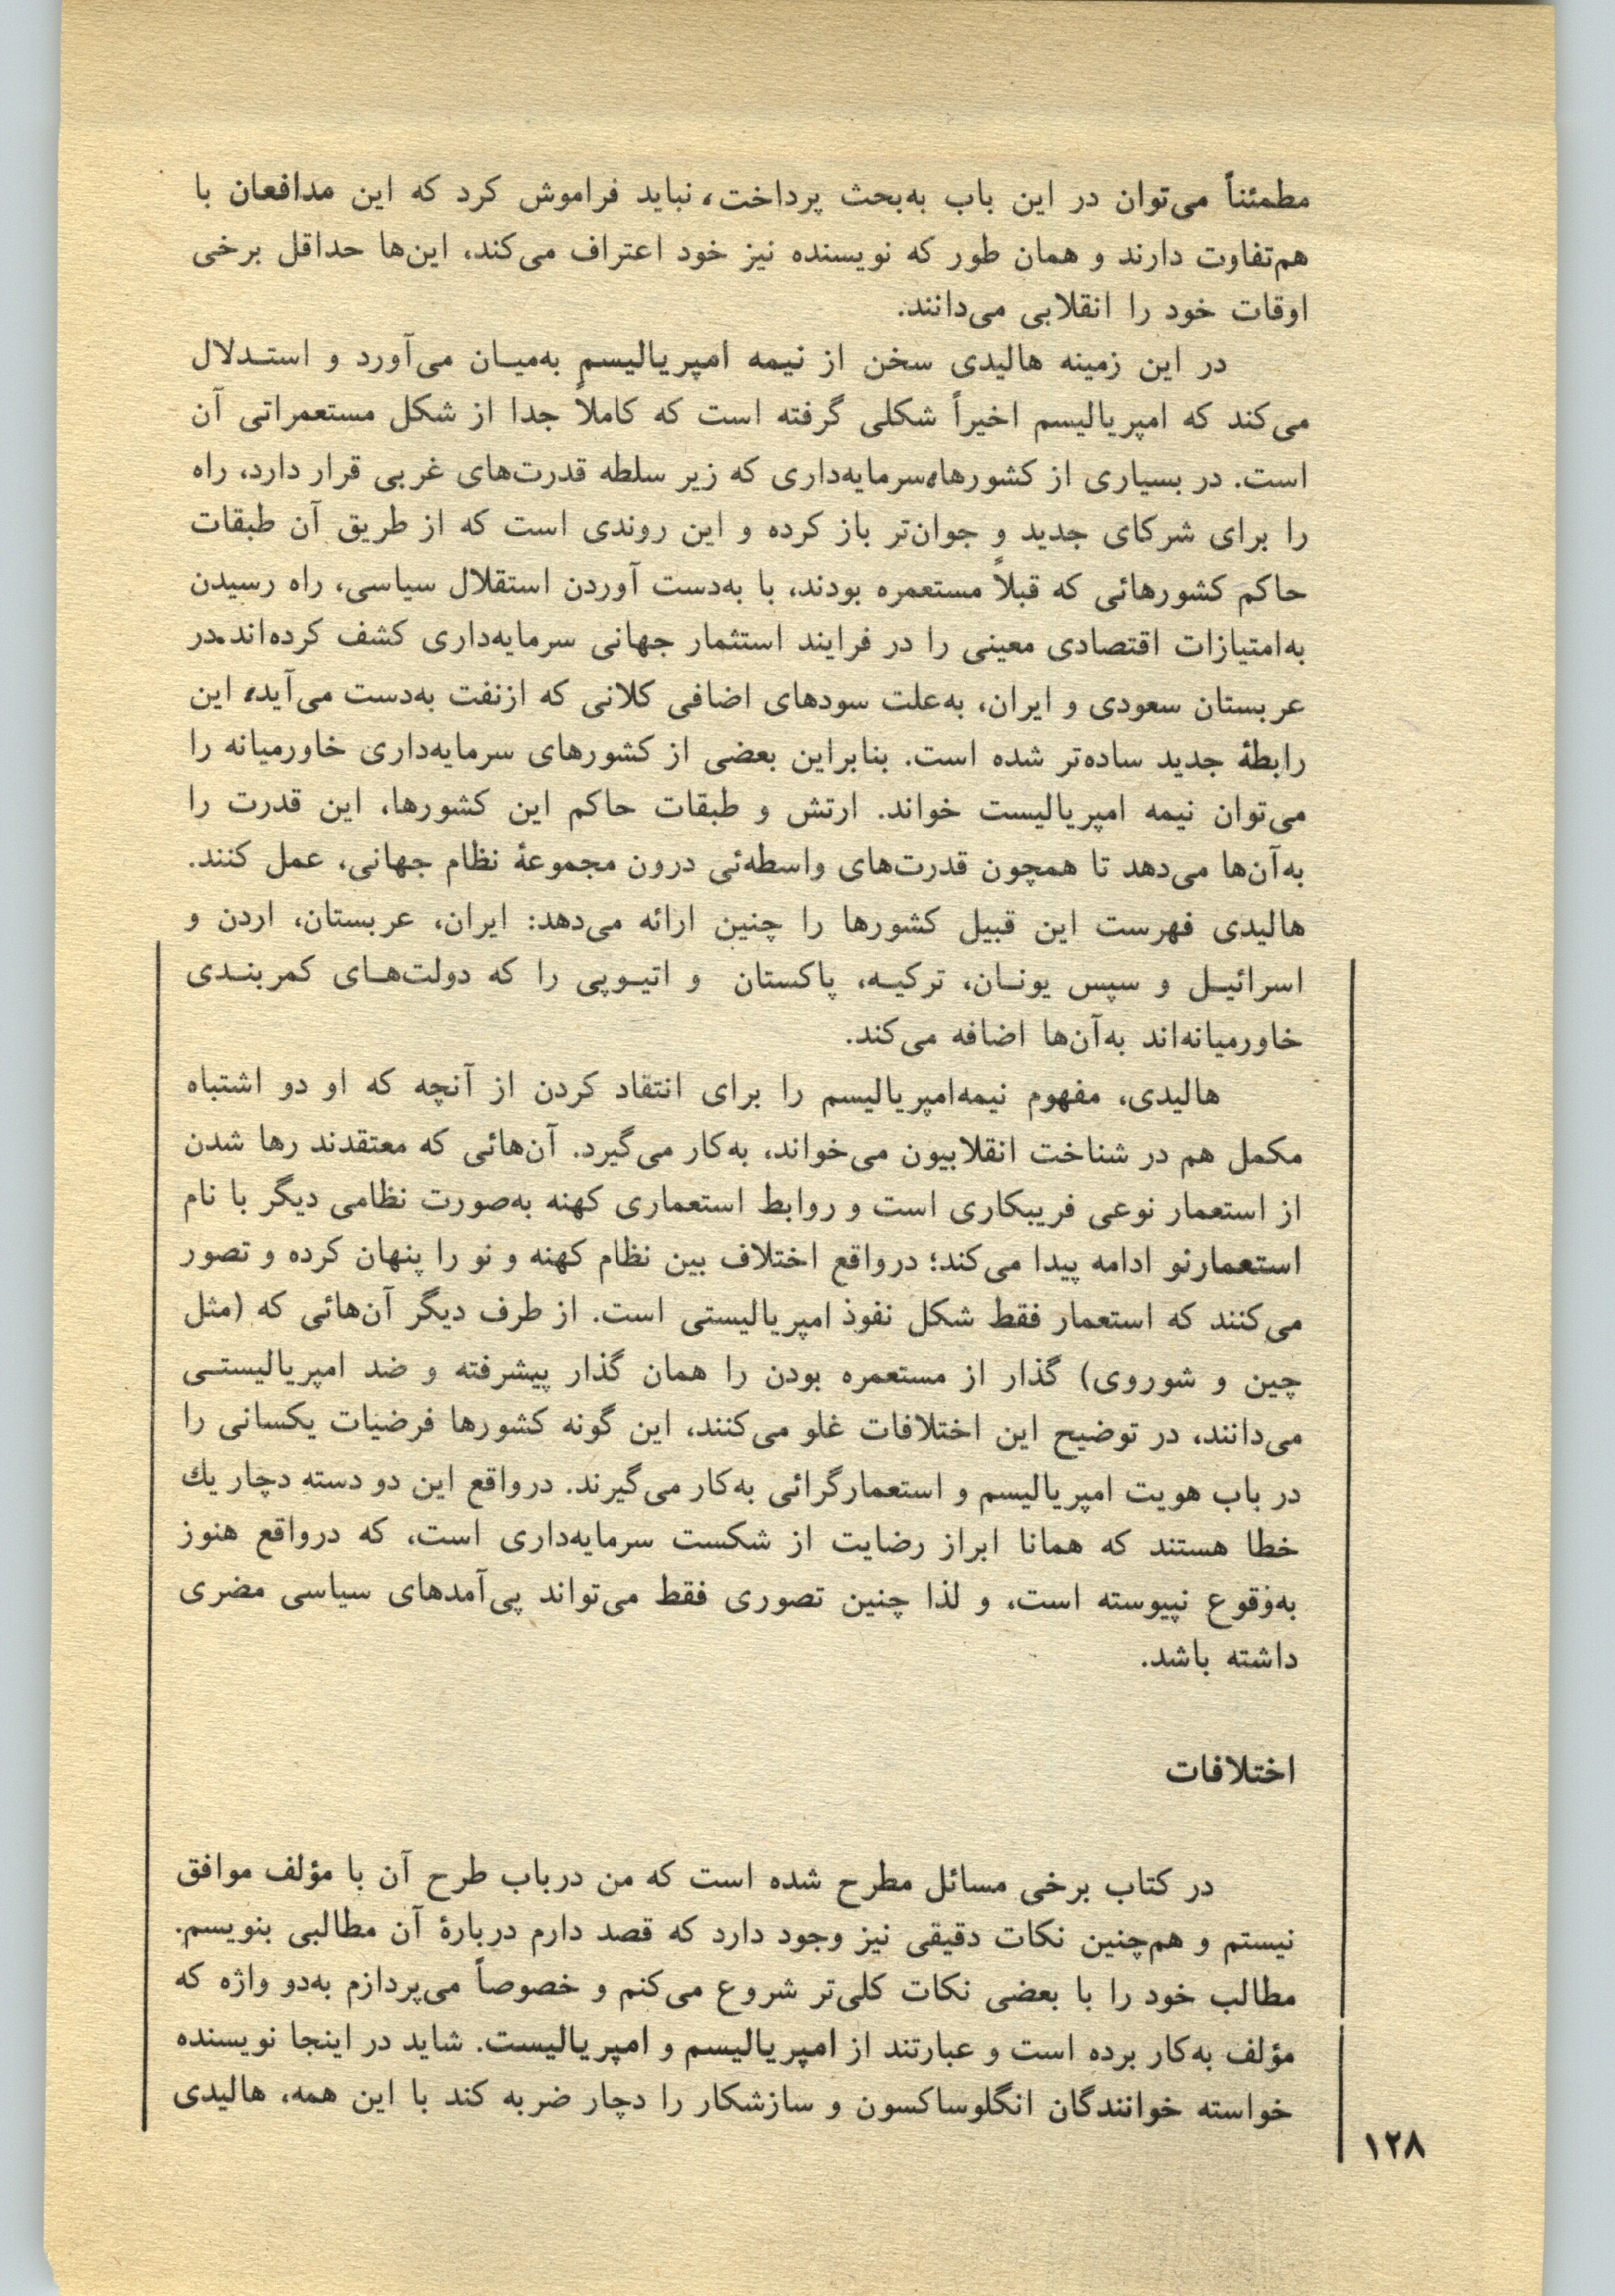 مطمئناً می‌توان در این باب به‌بحث پرداخت، نباید فراموش کرد که این مدافعان با
هم‌تفاوت دارند و همان طور که نویسنده نیز خود اعتراف می‌کند، این‌ها حداقل برخی
اوقات خود را انقلابی می‌دانند.
در این زمینه هالیدی سخن از نیمه امپریالیسم به‌میـان می‌آورد و استـدلال
می‌کند که امپریالیسم اخیراً شکلی گرفته است که کاملاً جدا از شکل مستعمراتی آن
است. در بسیاری از کشورها،سرمایه‌داری که زیر سلطه قدرت‌های غربی قرار دارد، راه
را برای شرکای جدید و جوان‌تر باز کرده و این روندی است که از طریق آن طبقات
حاکم کشورهائی که قبلاً مستعمره بودند، با به‌دست آوردن استقلال سیاسی، راه رسیدن
به‌امتیازات اقتصادی معینی را در فرایند استثمار جهانی سرمایه‌داری کشف کرده‌اند.در
عربستان سعودی و ایران، به‌علت سودهای اضافی کلانی که ازنفت به‌دست می‌آید، این
رابطهٔ جدید ساده‌تر شده است. بنابراین بعضی از کشورهای سرمایه‌داری خاورمیانه را
می‌توان نیمه امپریالیست خواند. ارتش و طبقات حاکم این کشورها، این قدرت را
به‌آن‌ها می‌دهد تا همچون قدرت‌های واسطه‌ئی درون مجموعهٔ نظام جهانی، عمل کنند.
هالیدی فهرست این قبیل کشورها را چنین ارائه می‌دهد: ایران، عربستان، اردن و
اسرائیـل و سپس یونـان، ترکیـه، پاکستان و اتیـوپی را که دولت‌هـای کمربنـدی
خاورمیانه‌اند به‌آن‌ها اضافه می‌کند.
هالیدی، مفهوم نیمه‌امپریالیسم را برای انتقاد کردن از آنچه که او دو اشتباه
مکمل هم در شناخت انقلابیون می‌خواند، به‌کار می‌گیرد. آن‌هائی که معتقدند رها شدن
از استعمار نوعی فریبکاری است و روابط استعماری کهنه به‌صورت نظامی دیگر با نام
استعمارنو ادامه پیدا می‌کند؛ درواقع اختلاف بین نظام کهنه و نو را پنهان کرده و تصور
می‌کنند که استعمار فقط شکل نفوذ امپریالیستی است. از طرف دیگر آن‌هائی که (مثل
چین و شوروی) گذار از مستعمره بودن را همان گذار پیشرفته و ضد امپریالیستـی
می‌دانند، در توضیح این اختلافات غلو می‌کنند، این گونه کشورها فرضیات یکسانی را
در باب هویت امپریالیسم و استعمارگرائی به‌کار می‌گیرند. درواقع این دو دسته دچار یك
خطا هستند که همانا ابراز رضایت از شکست سرمایه‌داری است، که درواقع هنوز
به‌وقوع نپیوسته است، و لذا چنین تصوری فقط می‌تواند پی‌آمدهای سیاسی مضری
داشته باشد.
اختلافات
در کتاب برخی مسائل مطرح شده است که من درباب طرح آن با مؤلف موافق
نیستم و هم‌چنین نکات دقیقی نیز وجود دارد که قصد دارم دربارهٔ آن مطالبی بنویسم.
مطالب خود را با بعضی نکات کلی‌تر شروع می‌کنم و خصوصاً می‌پردازم به‌دو واژه که
مؤلف به‌کار برده است و عبارتند از امپریالیسم و امپریالیست. شاید در اینجا نویسنده
خواسته خوانندگان انگلوساکسون و سازشکار را دچار ضربه کند با این همه، هالیدی
۱۲۸